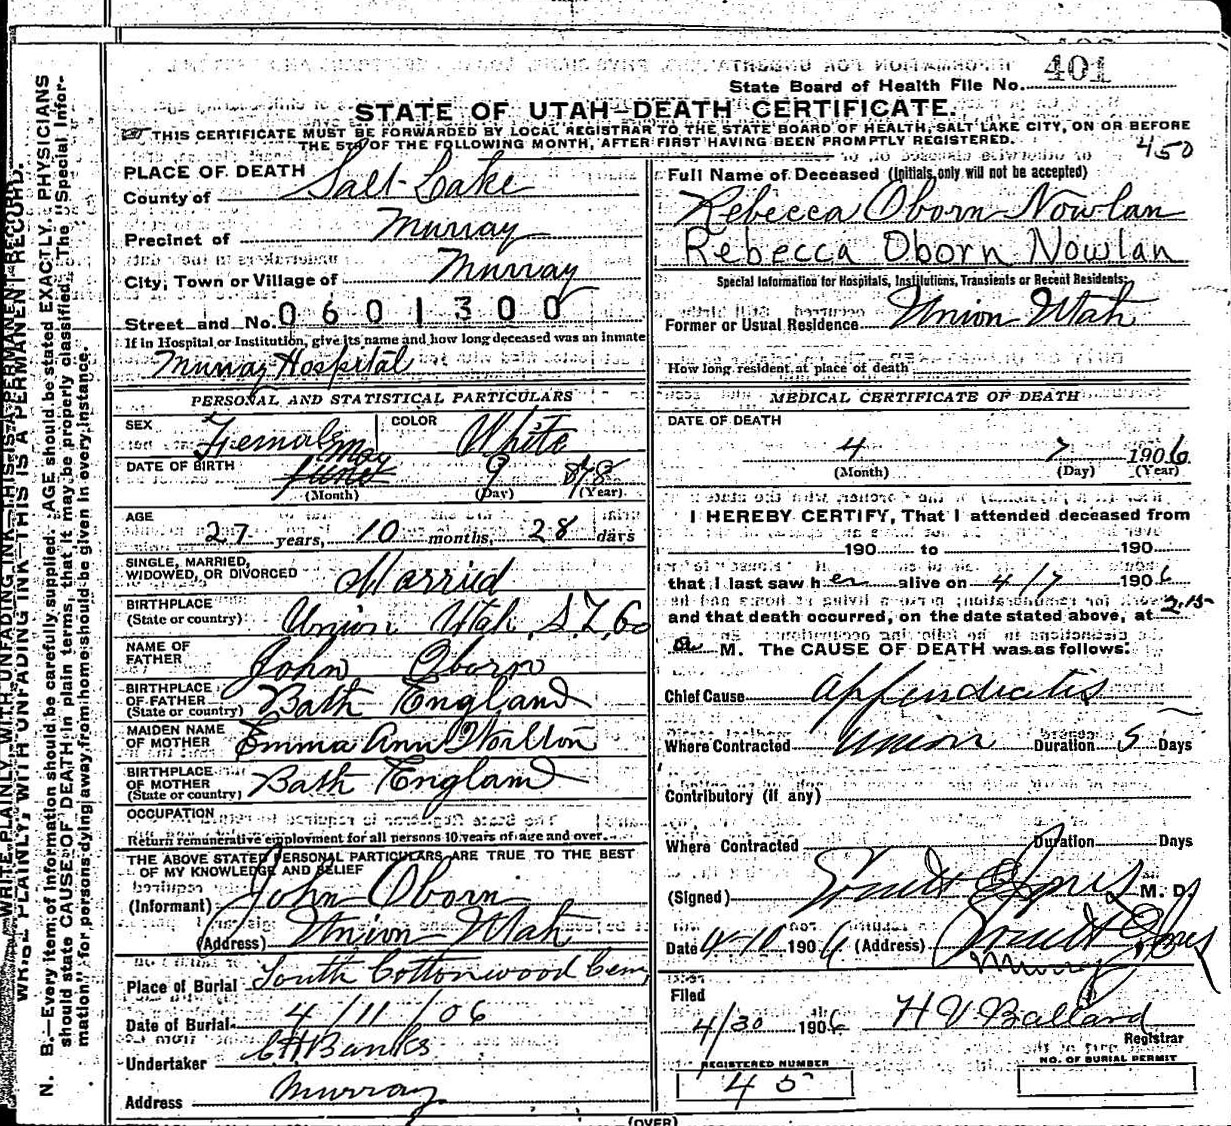 State Board of Health File No. 401
STATE OF UTAH—DEATH CERTIFICATE.
THIS CERTIFICATE MUST BE FORWARDED BY LOCAL REGISTRAR TO THE STATE BOARD OF HEALTH, SALT LAKE CITY, ON OR BEFORE
THE 5TH OF THE FOLLOWING MONTH, AFTER FIRST HAVING BEEN PROMPTLY REGISTERED.
450
PLACE OF DEATH
County of Salt Lake
Precinct of Murray
City, Town or Village of Murray
Street and No. 0601300
If in Hospital or Institution, give its name and how long deceased was an inmate
Murray Hospital
PERSONAL AND STATISTICAL PARTICULARS
SEX Female
COLOR White
DATE OF BIRTH May June 9 878
(Month) (Day) (Year)
AGE
27 years, 10 months, 28 days
SINGLE, MARRIED,
WIDOWED, OR DIVORCED Married
BIRTHPLACE
(State or country) Union Utah, S.L. Co
NAME OF
FATHER John Oborn
BIRTHPLACE
OF FATHER
(State or country) Bath England
MAIDEN NAME
OF MOTHER Emma Ann Worlton
BIRTHPLACE
OF MOTHER
(State or country) Bath England
OCCUPATION
Return remunerative employment for all persons 10 years of age and over.
THE ABOVE STATED PERSONAL PARTICULARS ARE TRUE TO THE BEST
OF MY KNOWLEDGE AND BELIEF
(Informant) John Oborn
(Address) Union Utah
Place of Burial South Cottonwood Cem,
Date of Burial 4/11/06
Undertaker Banks
Address Murray
Full Name of Deceased (Initials only will not be accepted)
Rebecca Oborn Nowlan
Rebecca Oborn Nowlan
Special Information for Hospitals, Institutions, Transients or Recent Residents:
Former or Usual Residence Union Utah
How long resident at place of death
MEDICAL CERTIFICATE OF DEATH
DATE OF DEATH
4 7 1906
(Month) (Day) (Year)
I HEREBY CERTIFY, That I attended deceased from
190 to 190
that I last saw her alive on 4/7 1906
and that death occurred, on the date stated above, at 2.15
a M. The CAUSE OF DEATH was as follows:
Chief Cause Appendicatis
Where Contracted Union Duration 5 Days
Contributory (If any)
Where Contracted Duration Days
(Signed) Jones M. D.
Date 4-10 1906 (Address) Jones
Murray
Filed
4/30 1906 H V Ballard
Registrar
REGISTERED NUMBER
45
NO. OF BURIAL PERMIT
(OVER)
WRITE PLAINLY, WITH UNFADING INK—THIS IS A PERMANENT RECORD.
N. B.—Every item of information should be carefully supplied. AGE should be stated EXACTLY. PHYSICIANS
should state CAUSE OF DEATH in plain terms, that it may be properly classified. The "Special Infor-
mation" for persons dying away from home should be given in every instance.